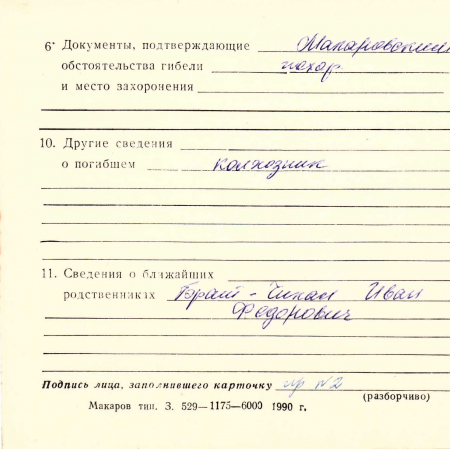 6· Документы, подтверждающие Макаровский
обстоятельства гибели пахар
и место захоронения
10. Другие сведения
о погибшем колхозник
11. Сведения о ближайших
родственниках Брат - Чипак Иван
Федорович
Подпись лица, заполнившего карточку гр №2
(разборчиво)
Макаров тип. З. 529—1175—6000 1990 г.